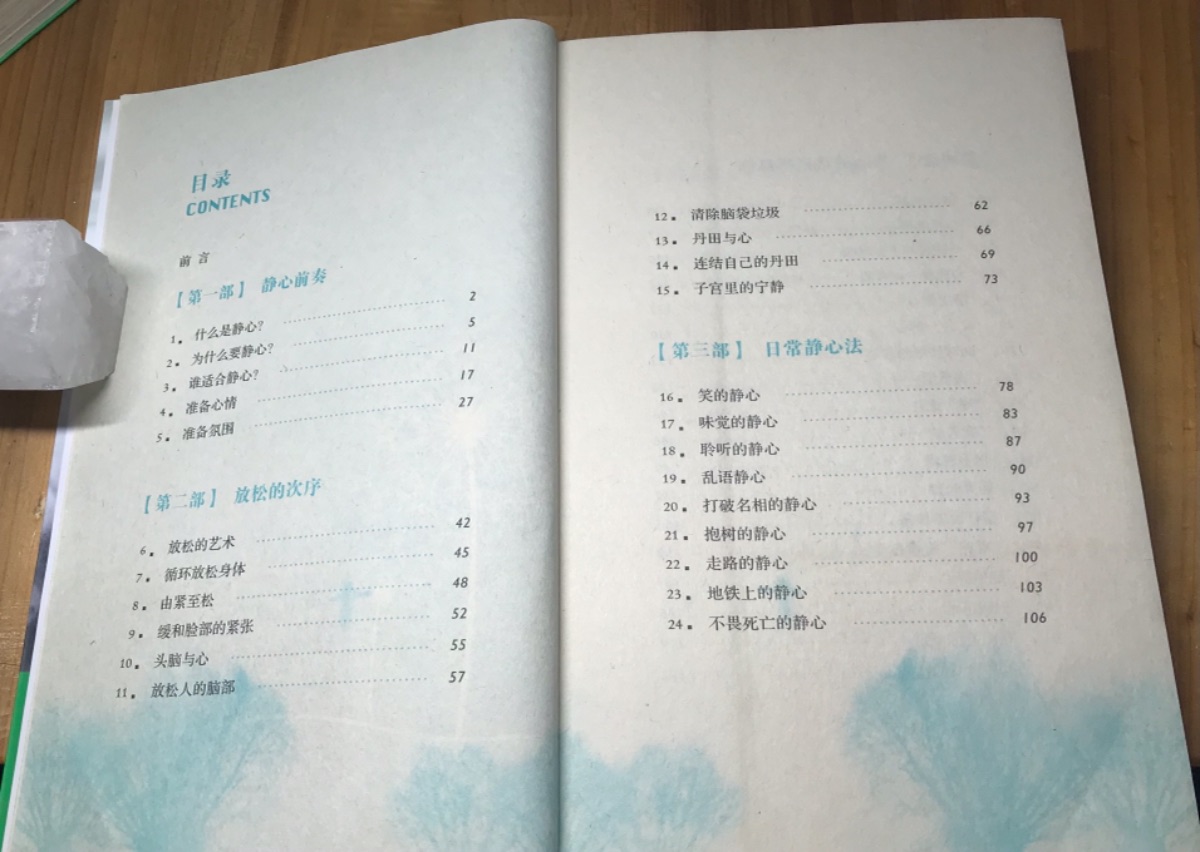 目录
CONTENTS
前言
【第一部】 静心前奏
1. 什么是静心? 2
2. 为什么要静心? 5
3. 谁适合静心? 11
4. 准备心情 17
5. 准备氛围 27
【第二部】 放松的次序
6. 放松的艺术 42
7. 循环放松身体 45
8. 由紧至松 48
9. 缓和脸部的紧张 52
10. 头脑与心 55
11. 放松人的脑部 57
12. 清除脑袋垃圾 62
13. 丹田与心 66
14. 连结自己的丹田 69
15. 子宫里的宁静 73
【第三部】 日常静心法
16. 笑的静心 78
17. 味觉的静心 83
18. 聆听的静心 87
19. 乱语静心 90
20. 打破名相的静心 93
21. 抱树的静心 97
22. 走路的静心 100
23. 地铁上的静心 103
24. 不畏死亡的静心 106